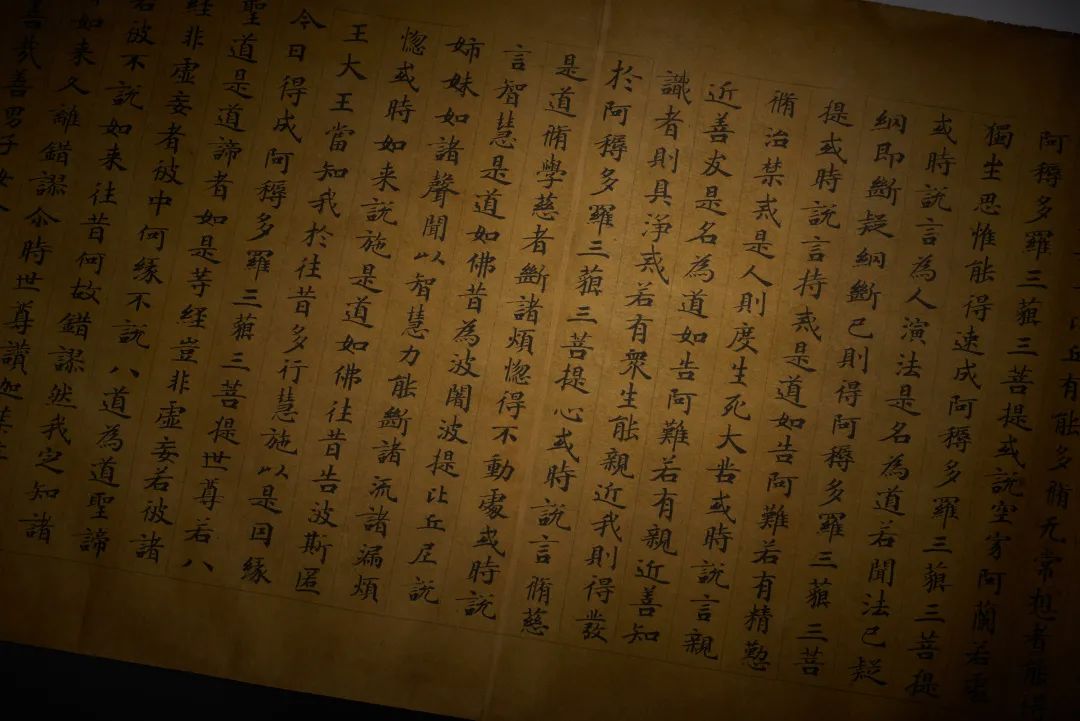 比丘有能多脩无常想者能得
阿耨多羅三藐三菩提或說空穽阿蘭若處
獨坐思惟能得速成阿耨多羅三藐三菩提
或時說言為人演法是名為道若聞法已疑
網即斷疑網斷已則得阿耨多羅三藐三菩
提或時說言持戒是道如告阿難若有精懃
脩治禁戒是人則度生死大苦或時說言親
近善友是名為道如告阿難若有親近善知
識者則具淨戒若有衆生能親近我則得發
於阿耨多羅三藐三菩提心或時說言脩慈
是道脩學慈者斷諸煩惚得不動處或時說
言智慧是道如佛昔為波闍波提比丘尼說
姉妹如諸聲聞以智慧力能斷諸流諸漏煩
惚或時如来說施是道如佛往昔告波斯匿
王大王當知我於往昔多行慧施以是因緣
今日得成阿耨多羅三藐三菩提世尊若八
聖道是道諦者如是等經豈非虛妄若彼諸
經非虛妄者彼中何緣不說八道為道聖諦
若彼不說如来往昔何故錯謬然我定知諸
如来久離錯謬尒時世尊讚迦葉
善哉善男子汝